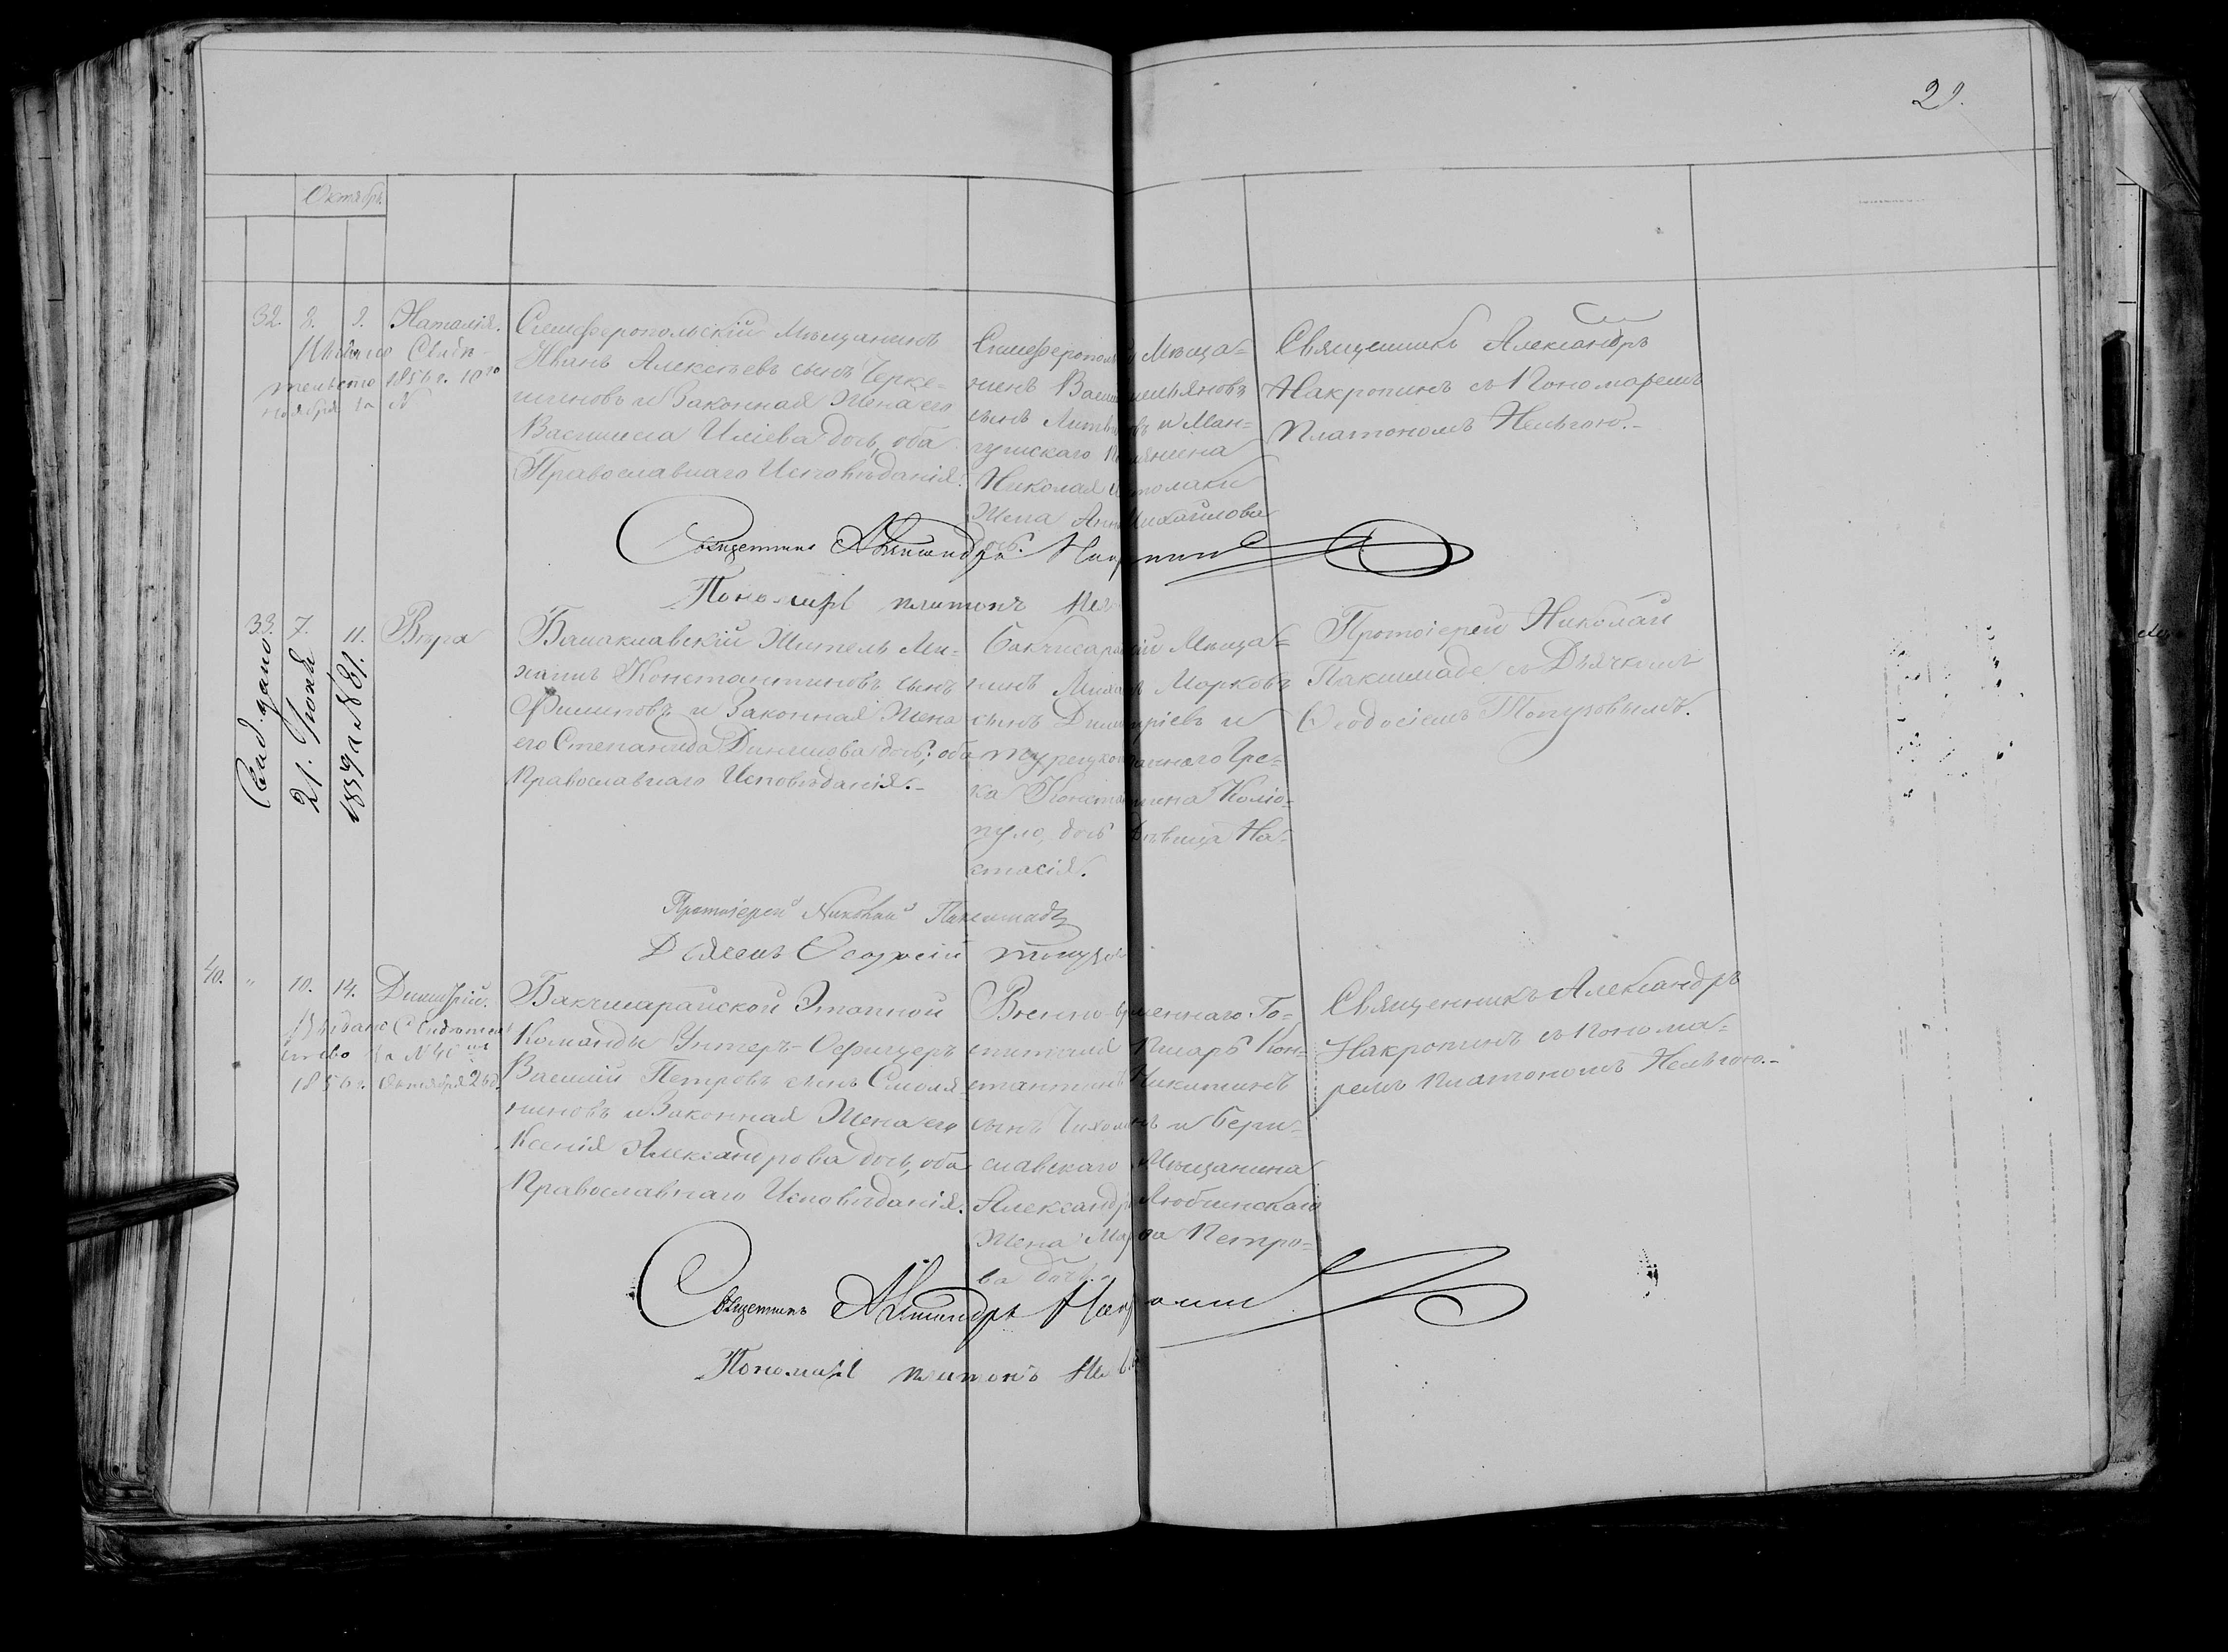 29.
Октябрь.
32. 8. 9. Наталія.
Свидѣ-
тельство 1856 г. 10го
ноября за №
Симферопольскій Мѣщанинъ
Иванъ Алексѣевъ сынъ Черке-
шиновъ и Законная Жена его
Василиса Иліева дочь, оба
Православнаго Исповѣданія.
Симферополь й Мѣща=
нинъ Васи ильяновъ
сынъ Литви овъ и Ман=
гушскаго янина
Николая
Жена Анна Михайлова
дочь.
Священникъ Александръ
Накропинъ съ Пономаремъ
Платономъ Нельгою.-
Священникъ Александръ Накропинъ
Пономарь Платонъ
33. 7. 11. Вѣра
Свид. дано
21. Іюня
1859 за № 81.
Балаклавскій Житель Ми-
хаилъ Константиновъ сынъ
Филиповъ и Законная Жена
его Степанида дочь; оба
Православнаго Исповѣданія.-
Бакчисарайскій Мѣща=
нинъ Марковъ
сынъ Димитріевъ и
Турецкоподданнаго Гре=
ка Константина Коліо-
пуло, дочь дѣвица На-
стасія.
Протоіерей Николай
Паксимаде съ Дьячкомъ
Ѳеодосіемъ Топузовымъ.
Протоіерей Николай Паксимаде
Дьячекъ Ѳеодосій Топузовъ
40. " 10. 14. Димитрій.
Выдано Свидѣтель
ство за №
1856 г. Октября 26 д.
Бакчисарайской Этапной
Команды Унтеръ-Офицеръ
Василій Петровъ сынъ Смоля-
ниновъ и Законная Жена его
Ксенія Александрова дочь, оба
Православнаго Исповѣданія.
Военно-временнаго Го=
спиталя Писарь Кон=
стантинъ Никитинъ
сынъ и Бери=
славскаго Мѣщанина
Александра Любинскаго
Жена Марѳа Петро=
ва дочь.
Священникъ Александръ
Накропинъ съ Понома=
ремъ Платономъ Нельгою.-
Священникъ Александръ Накропинъ
Пономарь Платонъ